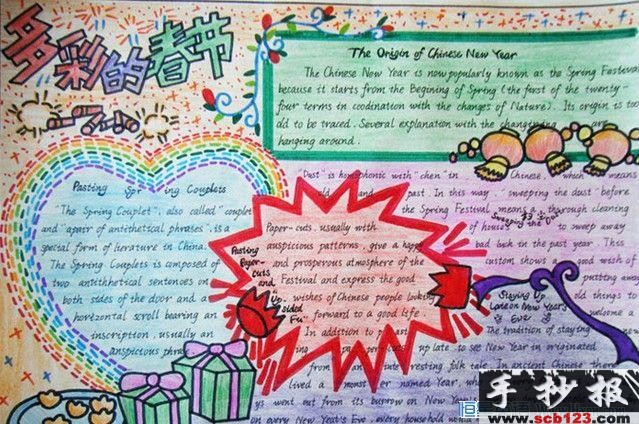 多彩的春节
The Origin of Chinese New Year
The Chinese New Year is now popularly known as the Spring Festival
because it starts from the Begining of Spring (the first of the twenty-
four terms in coodination with the changes of Nature). Its origin is too
old to be traced. Several explanation with the changining are
hanging around.
Pasting Spring Couplets
"The Spring Couplet", also called "couplet
and "a pair of antithetical phrases", is a
special form of lierature in China.
The Spring Couplets is composed of
two antithhetical sentences on
both sides of the door and a
horizontal scroll bearing an
inscription, usually an
auspicious phrase.
Pasting
Paper-
cuts
and
Up
sided
Fu"
Paper-cuts, usually with
auspicious patterns, give a happy
and prosperous atmosphere of the
Festival and express the good
wishes of Chinese people looking
forward to a good life.
In addition to past
"Dust" is homophonic with "chen" in Chinese, which means
old and past. In this way, "sweeping the dust" before
the Spring Festival means a thorough cleaning
of houses to sweep away
bad luck in the past year. This
custom shows a good wish of
putting away
old things to
welcome a
Sweeping the Dust
Staying Up
Late on New Year's
Eve
The tradition of staying
up late to see New Year in originated
from an interesting folk tale. In ancient Chinese there
lived a monster named Year, wh
ys went out from its buprow on New Year's
on every New Year's Eve, every household would
手抄报
www.scb123.com